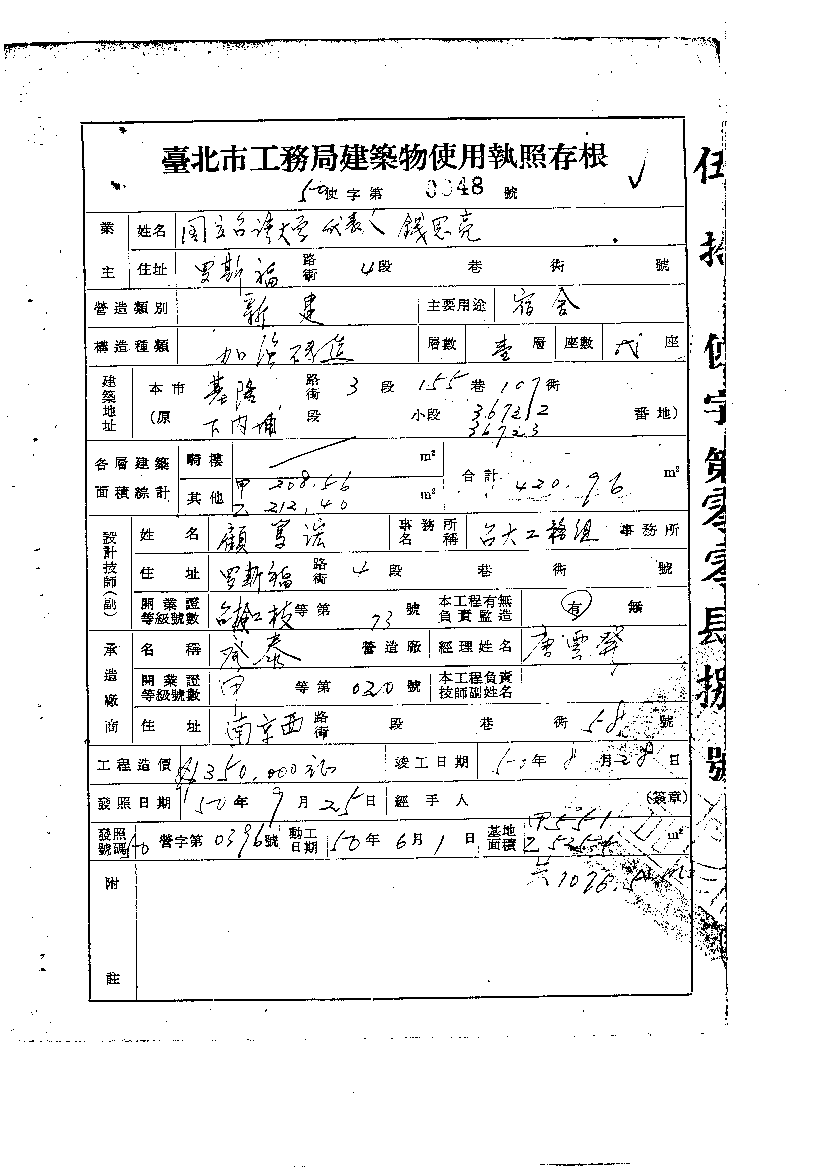 臺北市工務局建築物使用執照存根
50使字第 0048 號
業主 姓名 国立台湾大学 代表人 錢思亮
住址 罗斯福 路街 4段 巷 街 號
營造類別 新建 主要用途 宿舍
構造種類 加強磚造 層數 壹層 座數 弍座
建築地址 本市 基隆 路街 3段 155巷 107街
(原 下内埔 段 小段 367212 36723 番地)
各層建築面積綜計 騎樓 m² 合計 420.96 m²
其他 甲 208.56 乙 212.40 m²
設計技師(副) 姓名 顧 事務所名稱 台大工務組 事務所
住址 罗斯福 路街 4段 巷 街 號
開業證等級號數 等第 73 號 本工程有無負責監造 有 無
承造廠商 名稱 泰 營造廠 經理姓名 唐雲
開業證等級號數 甲 等第 020 號 本工程負責技師副姓名
住址 南京西 路街 段 巷 街 58 號
工程造價 350,000 竣工日期 50年8月28日
發照日期 50年9月25日 經手人 (簽章)
發照號碼 50 營字第0396號 動工日期 50年6月1日 基地面積 甲551 乙 m²
共
附註
伍拾 使字第零零肆捌號